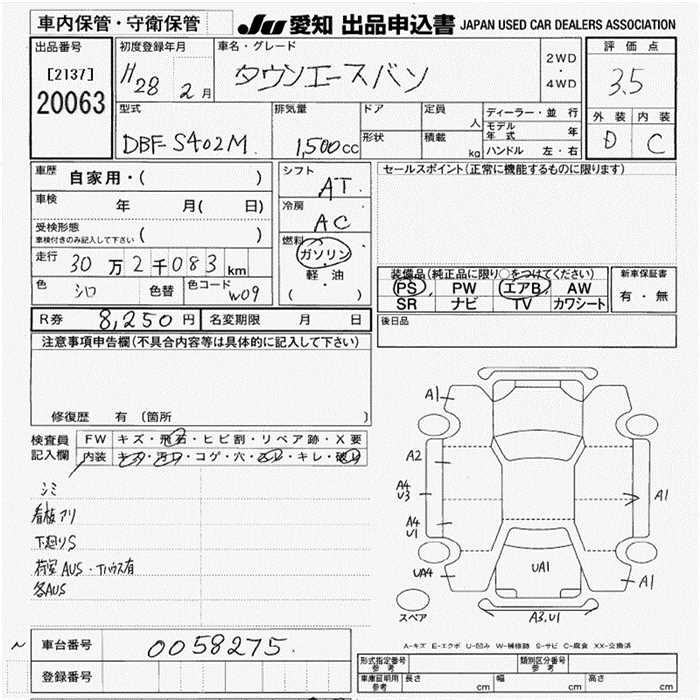 車内保管・守衛保管 JU 愛知 出品申込書 JAPAN USED CAR DEALERS ASSOCIATION
出品番号
[2137]
20063
初度登録年月
H28 2月
車名・グレード
タウンエースバン
2WD
・
4WD
評価点
3.5
外装 内装
D C
型式
DBF-S402M
排気量
1,500cc
ドア
形状
定員 人
積載 kg
ディーラー・並行
モデル年式 年
ハンドル 左・右
車歴 自家用・( )
車検 年 月( 日)
受検形態 ( )
車検付きのみ記入して下さい
走行 30万2千083km
色 シロ 色替 色コード W09
シフト
AT
冷房
AC
燃料
ガソリン
軽・油
( )
セールスポイント(正常に機能するものに限ります)
装備品(純正品に限り○をつけてください)
PS PW エアB AW
SR ナビ TV カワシート
新車保証書
有・無
R券 8,250円 名変期限 月 日
後日品
注意事項申告欄(不具合内容等は具体的に記入して下さい)
修復歴 有(箇所 )
検査員
記入欄
FW キズ・飛石・ヒビ割・リペア跡・X要
内装 キズ・汚れ・コゲ・穴・スレ・キレ・破れ
シミ
看板アリ
下廻りS
荷室AUS・Tハウス有
各AUS
A1
A2
A4
U3
A4
U1
UA4
UA1
A1
A1
A3.U1
スペア
A-キズ E-エクボ U-凹み W-補修跡 S-サビ C-腐食 XX-交換済
~ 車台番号 0058275
登録番号
形式指定番号
参考
類別区分番号
参考
車庫証明用
参考
長さ cm 幅 cm 高さ cm